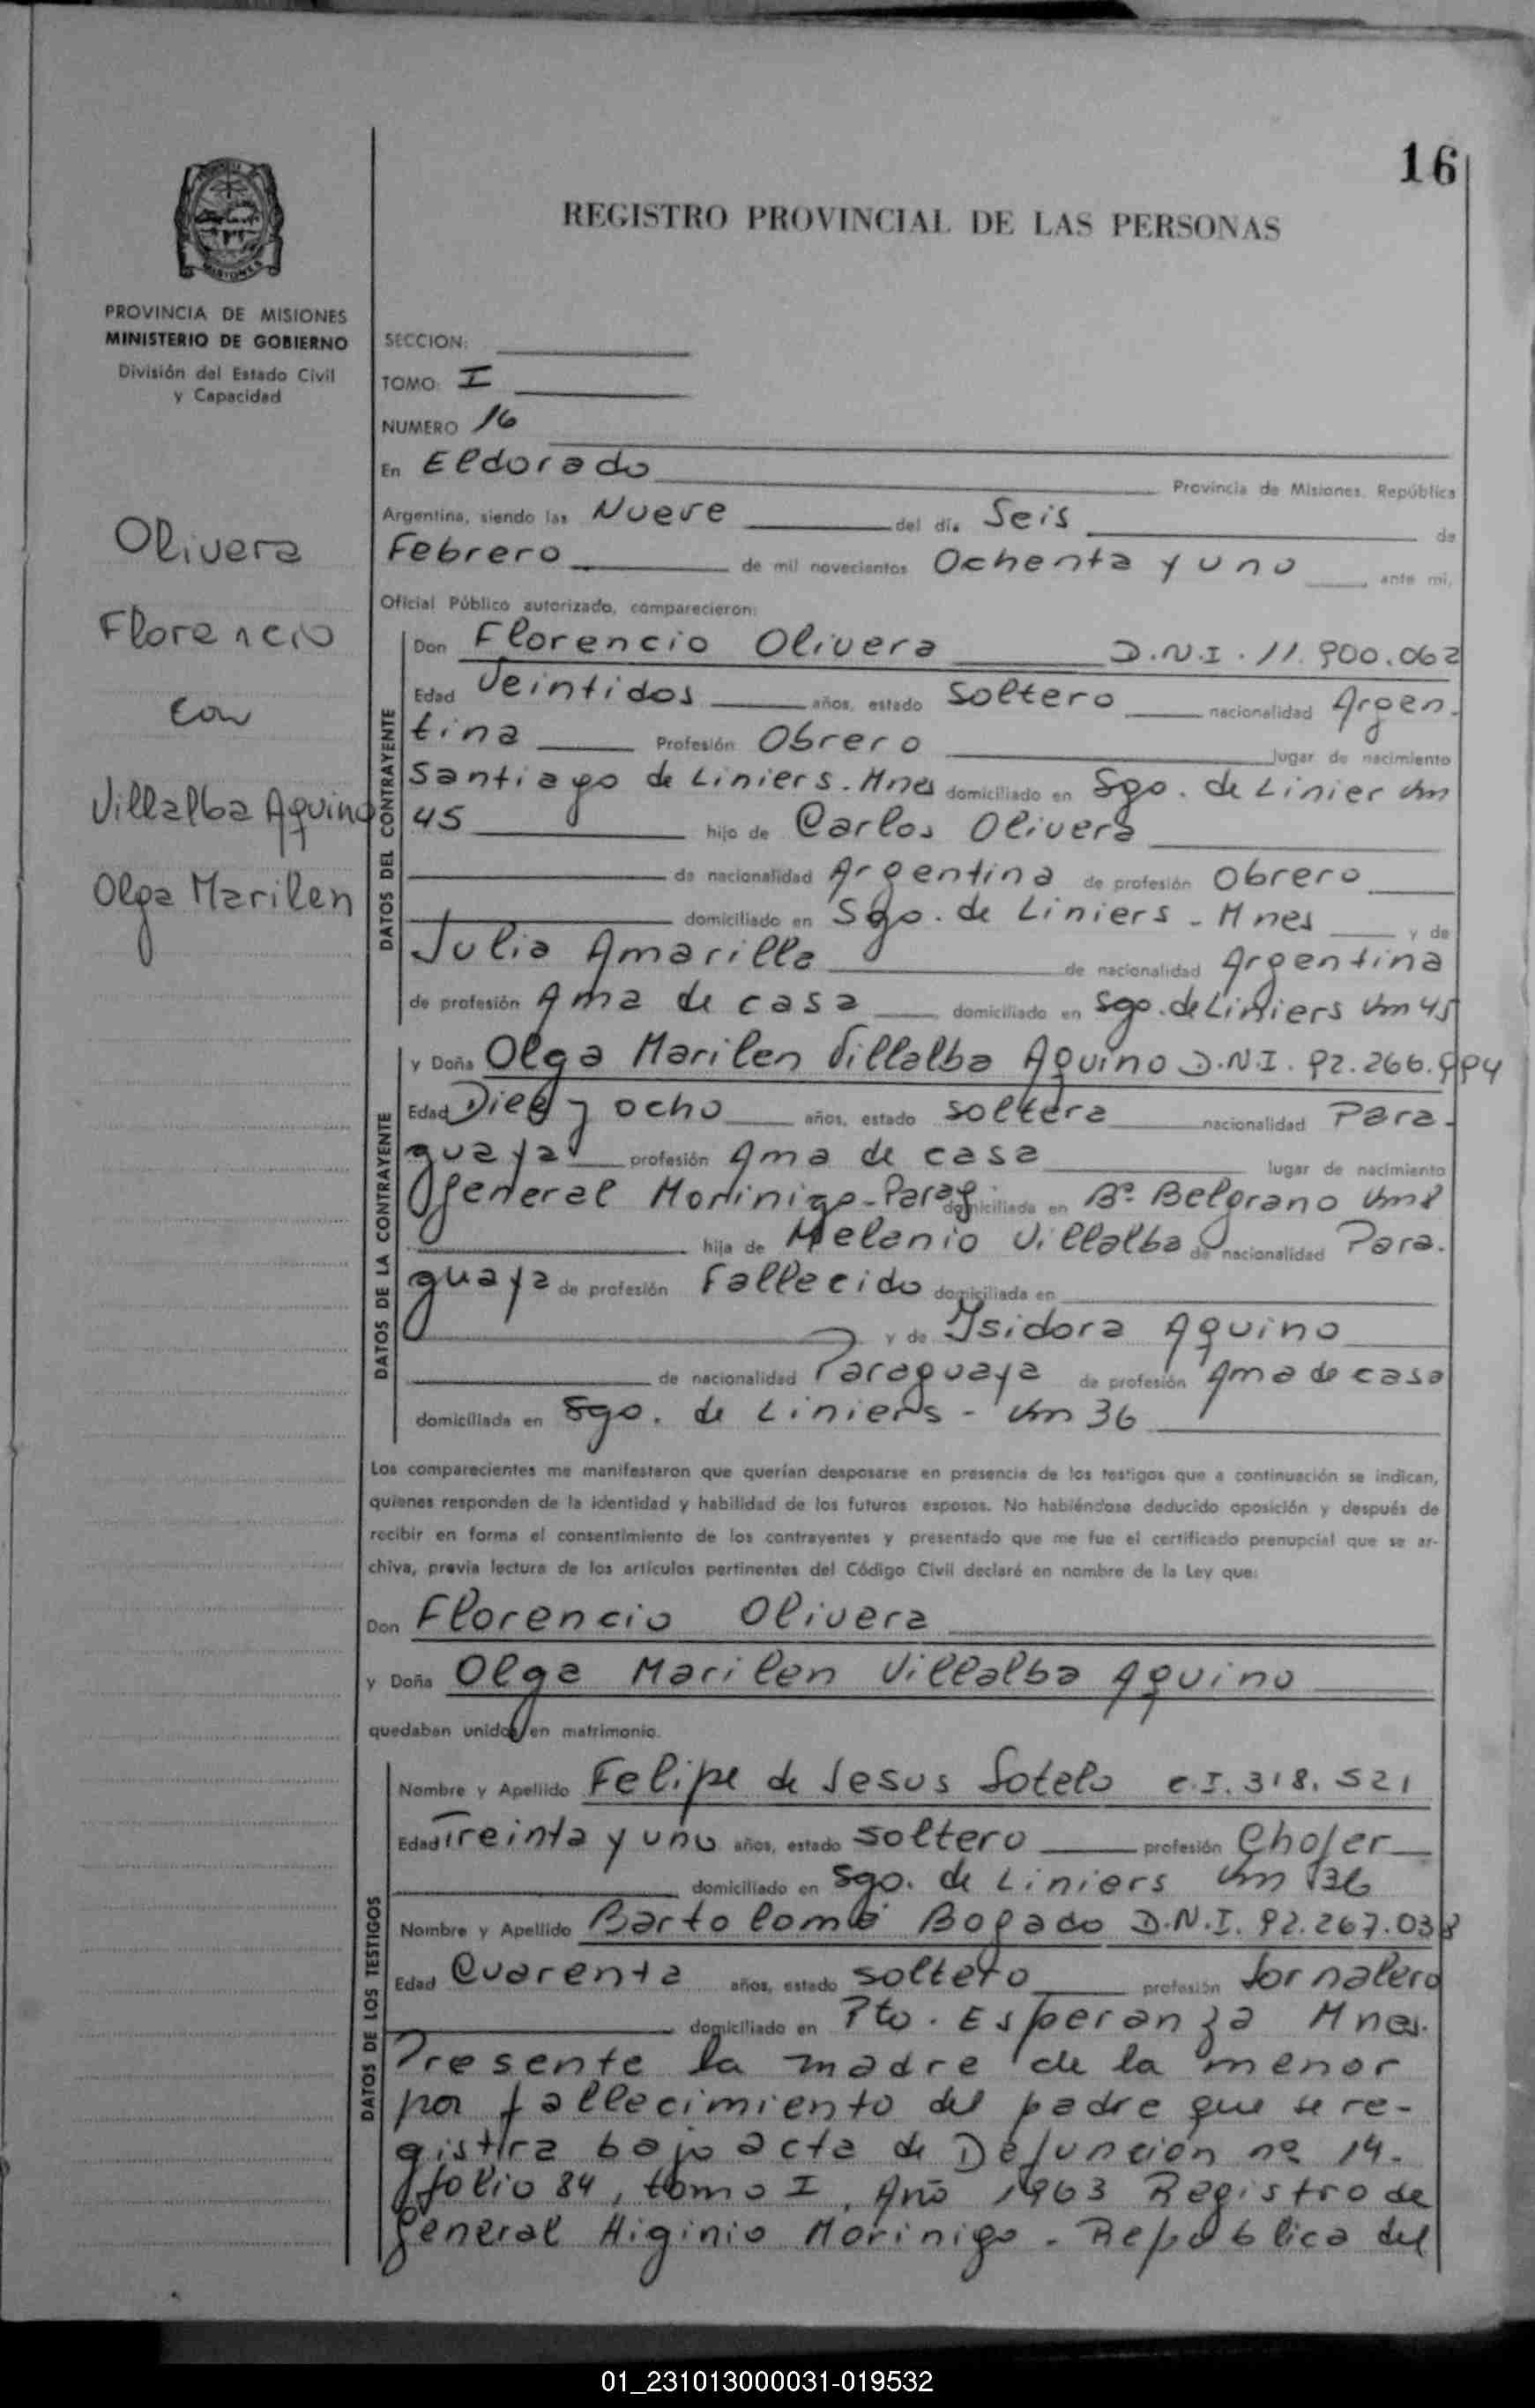 16
REGISTRO PROVINCIAL DE LAS PERSONAS
MISIONES
PROVINCIA DE MISIONES
MINISTERIO DE GOBIERNO
División del Estado Civil
y Capacidad
Olivera
Florencio
con
Villalba Aquino
Olga Marilen
SECCION:
TOMO: I
NUMERO 16
En Eldorado Provincia de Misiones, República
Argentina, siendo las Nueve del día Seis de
Febrero de mil novecientos Ochenta y uno ante mi,
Oficial Público autorizado, comparecieron:
DATOS DEL CONTRAYENTE
Don Florencio Olivera D.N.I. 11.900.062
Edad Veintidos años, estado soltero nacionalidad Argen-
tina Profesión Obrero lugar de nacimiento
Santiago de Liniers. Mnes domiciliado en Sgo. de Linier Km
45 hijo de Carlos Olivera
de nacionalidad Argentina de profesión Obrero
domiciliado en Sgo. de Liniers - Mnes y de
Julia Amarilla de nacionalidad Argentina
de profesión Ama de casa domiciliado en Sgo. de Liniers Km 45
DATOS DE LA CONTRAYENTE
y Doña Olga Marilen Villalba Aquino D.N.I. 92.266.994
Edad Diez y ocho años, estado soltera nacionalidad Para-
guaya profesión Ama de casa lugar de nacimiento
General Morinigo-Parag domiciliada en Bº Belgrano Km 8
hija de Melanio Villalba de nacionalidad Para-
guaya de profesión Fallecido domiciliada en
y de Isidora Aquino
de nacionalidad Paraguaya de profesión Ama de casa
domiciliada en Sgo. de Liniers - Km 36
Los comparecientes me manifestaron que querían desposarse en presencia de los testigos que a continuación se indican,
quienes responden de la identidad y habilidad de los futuros esposos. No habiéndose deducido oposición y después de
recibir en forma el consentimiento de los contrayentes y presentado que me fue el certificado prenupcial que se ar-
chiva, previa lectura de los artículos pertinentes del Código Civil declaré en nombre de la Ley que:
Don Florencio Olivera
y Doña Olga Marilen Villalba Aquino
quedaban unidos en matrimonio.
DATOS DE LOS TESTIGOS
Nombre y Apellido Felipe de Jesus Sotelo C.I. 318.521
Edad Treinta y uno años, estado soltero profesión Chofer
domiciliado en Sgo. de Liniers Km 36
Nombre y Apellido Bartolomé Bogado D.N.I. 92.267.038
Edad Cuarenta años, estado soltero profesión Jornalero
domiciliado en Pto. Esperanza Mnes.
Presente la madre de la menor
por fallecimiento del padre que se re-
gistra bajo acta de Defunción nº 14-
folio 84, tomo I, Año 1963 Registro de
General Higinio Morinigo - República del
01_231013000031-019532